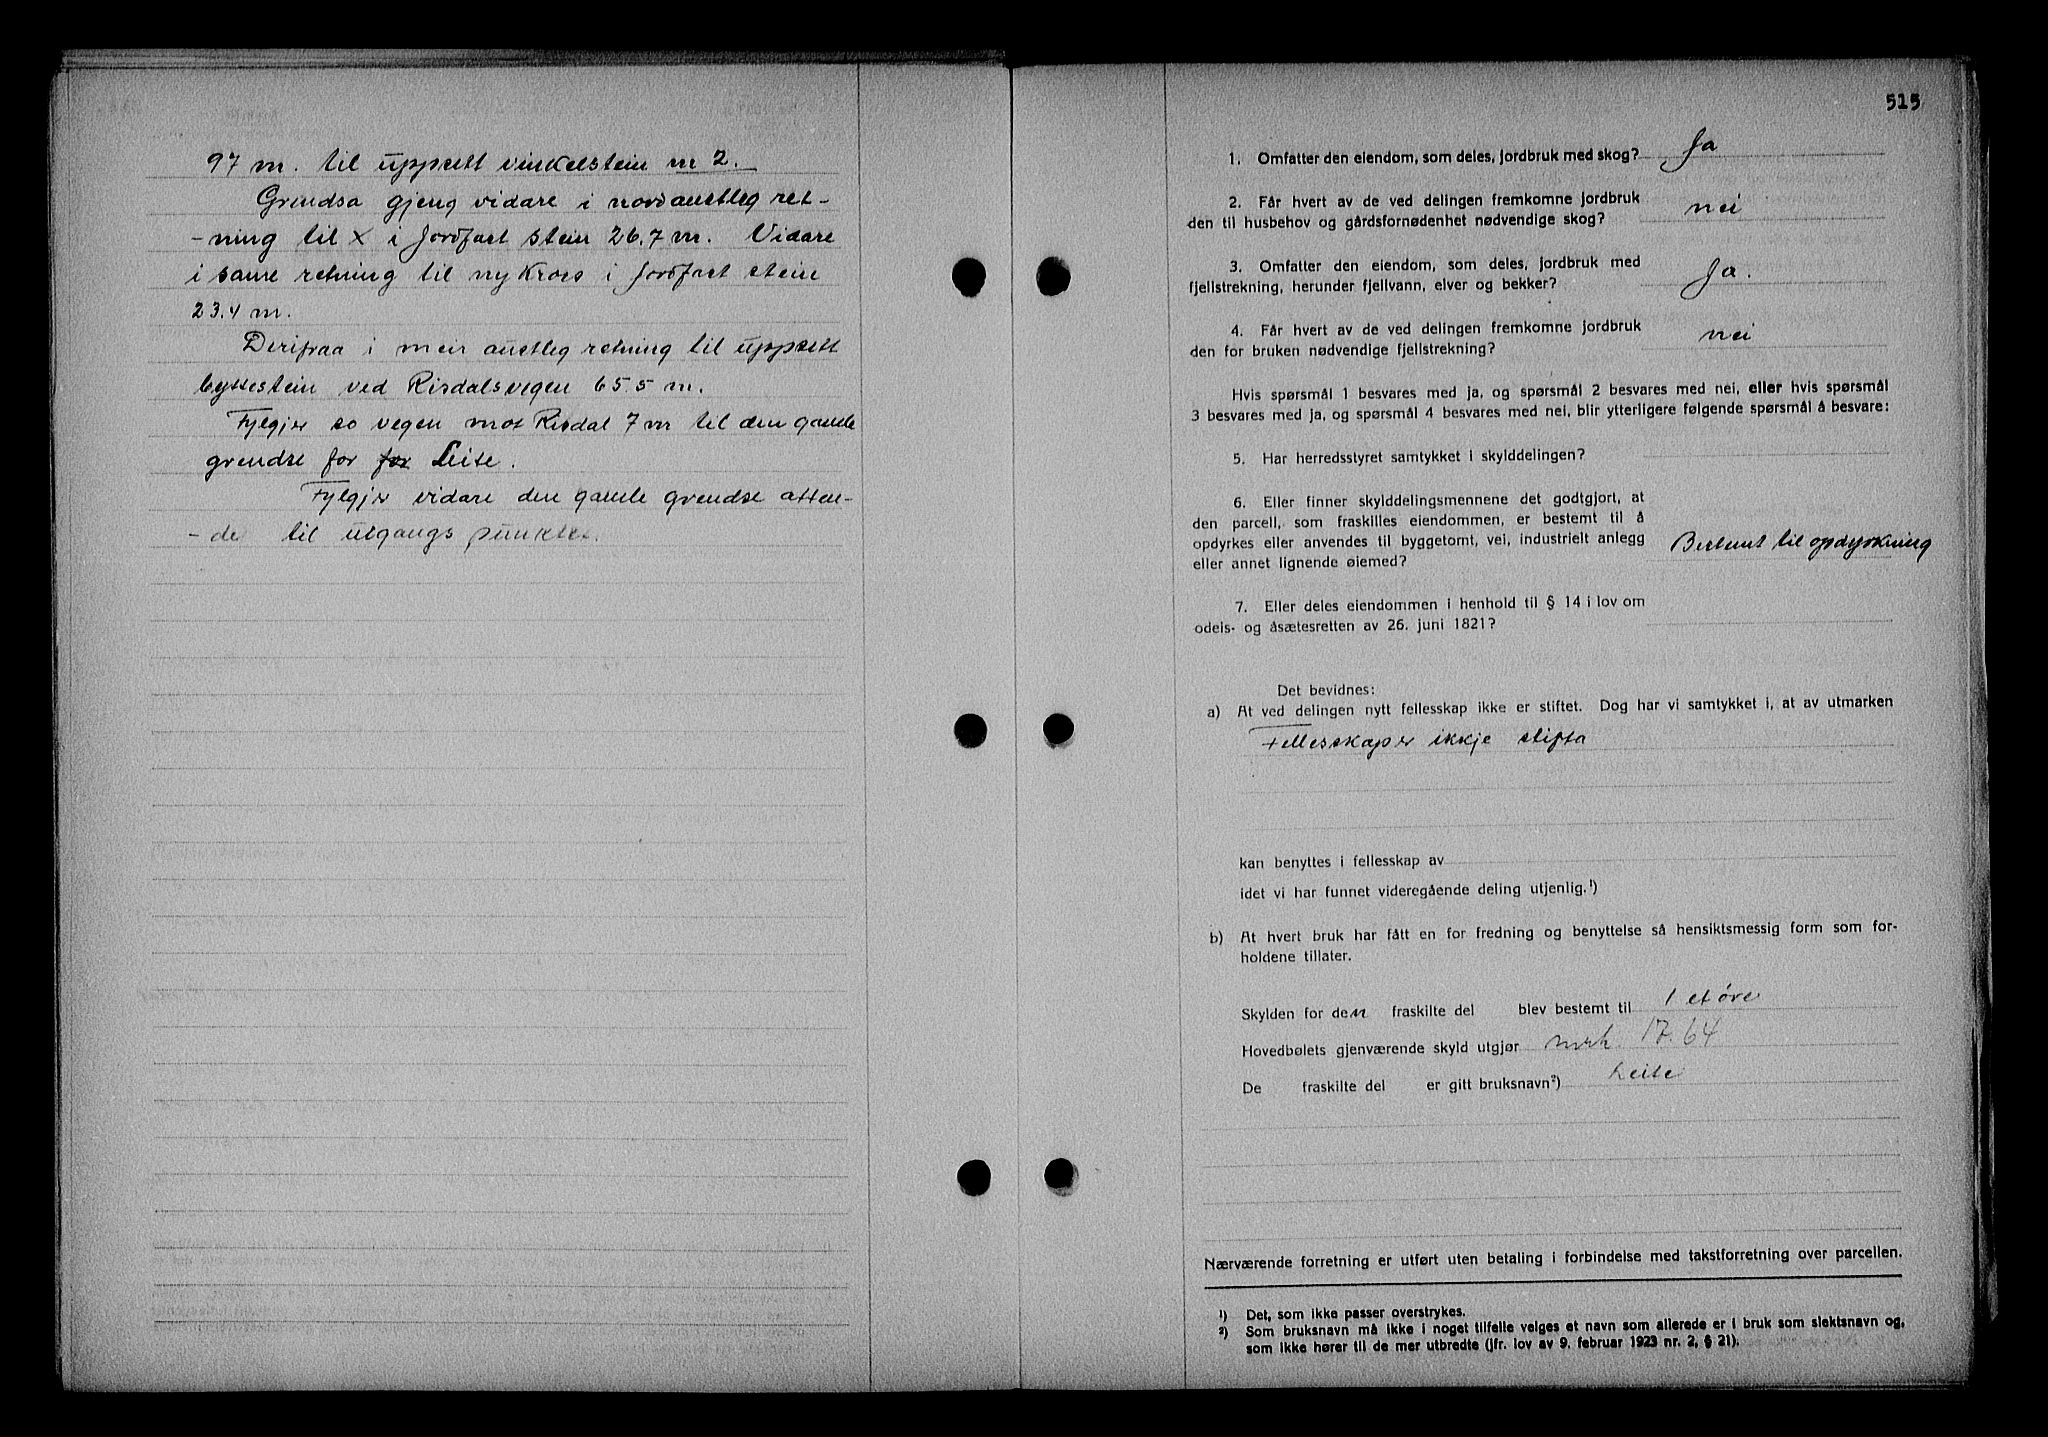 97 m. til uppsett vinkelstein nr 2.
Grendsa gjeng vidare i nordaustleg ret-
-ning til X i jordfast stein 26.7 m. Vidare
i same retning til ny Kross i jordfast stein
23.4 m.
Derifraa i meir austleg retning til uppsett
byttestein ved Risdalsvegen 65.5 m.
Fylgjer so vegen mot Risdal 7 m til den gamle
grendse for for Leite.
Fylgjer vidare den gamle grendse atten-
-de til utgangs punktet.
515
1. Omfatter den eiendom, som deles, jordbruk med skog? Ja
2. Får hvert av de ved delingen fremkomne jordbruk
den til husbehov og gårdsfornødenhet nødvendige skog? nei
3. Omfatter den eiendom, som deles, jordbruk med
fjellstrekning, herunder fjellvann, elver og bekker? Ja.
4. Får hvert av de ved delingen fremkomne jordbruk
den for bruken nødvendige fjellstrekning? nei
Hvis spørsmål 1 besvares med ja, og spørsmål 2 besvares med nei, eller hvis spørsmål
3 besvares med ja, og spørsmål 4 besvares med nei, blir ytterligere følgende spørsmål å besvare:
5. Har herredsstyret samtykket i skylddelingen?
6. Eller finner skylddelingsmennene det godtgjort, at
den parcell, som fraskilles eiendommen, er bestemt til å
opdyrkes eller anvendes til byggetomt, vei, industrielt anlegg Bestemt til opdyrkning
eller annet lignende øiemed?
7. Eller deles eiendommen i henhold til § 14 i lov om
odels- og åsætesretten av 26. juni 1821?
Det bevidnes:
a) At ved delingen nytt fellesskap ikke er stiftet. Dog har vi samtykket i, at av utmarken
Fellesskaper ikkje stifta
kan benyttes i fellesskap av
idet vi har funnet videregående deling utjenlig.¹)
b) At hvert bruk har fått en for fredning og benyttelse så hensiktsmessig form som for-
holdene tillater.
Skylden for den fraskilte del blev bestemt til 1 et øre
Hovedbølets gjenværende skyld utgjør mrk. 17.64
De fraskilte del er gitt bruksnavn²) Leite
Nærværende forretning er utført uten betaling i forbindelse med takstforretning over parcellen.
¹) Det, som ikke passer overstrykes.
²) Som bruksnavn må ikke i noget tilfelle velges et navn som allerede er i bruk som slektsnavn og,
som ikke hører til de mer utbredte (jfr. lov av 9. februar 1923 nr. 2, § 21).